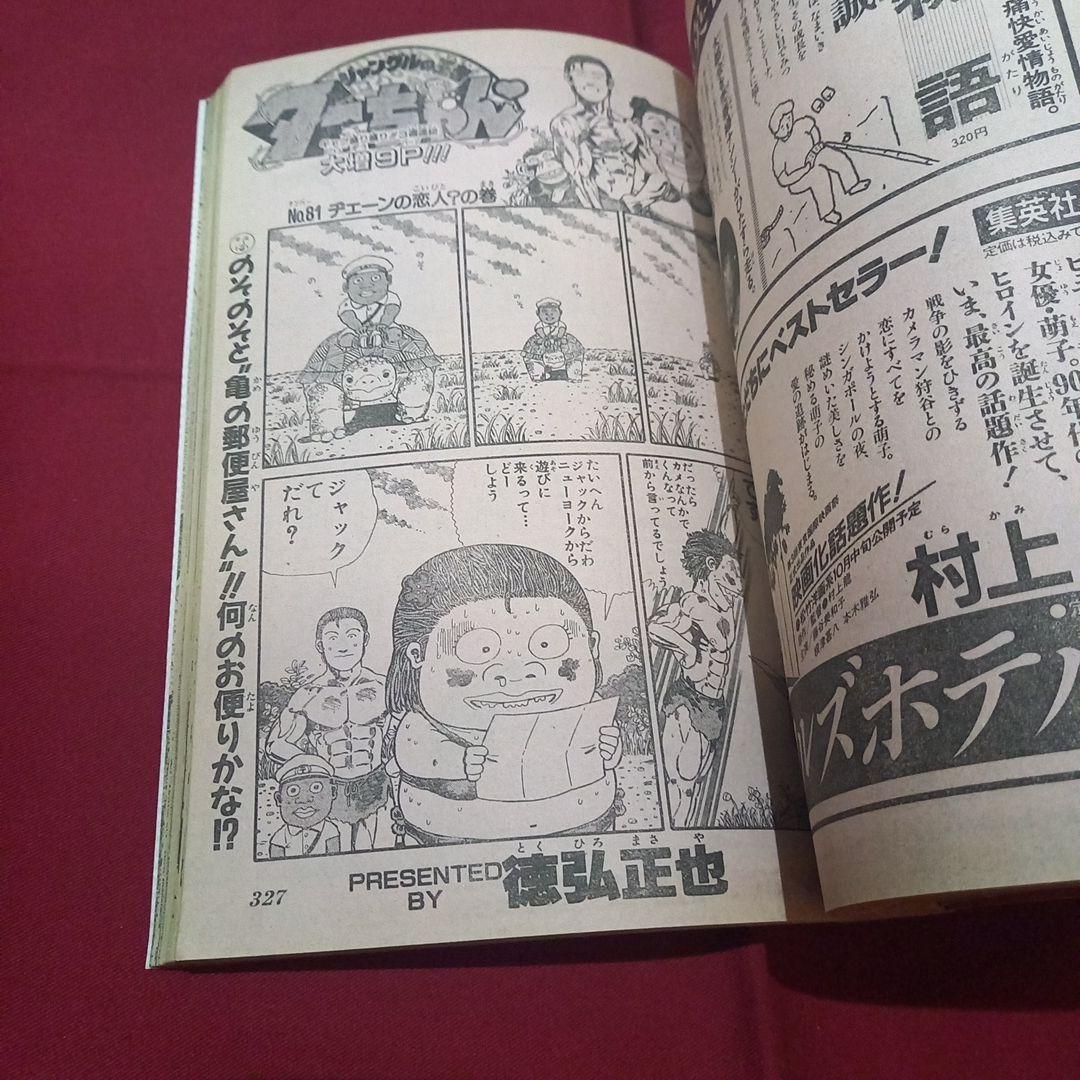 ジャングルの王者
ターちゃん
大増9P!!!
No.81 ヂェーンの恋人?の巻
のそのそと"亀の郵便屋さん"!!何のお便りかな!?
のそ
のそ
だったら
カメなんかで
くんなって
前から言ってるでしょう
たいへん
ジャックからだわ
ニューヨークから
遊びに
来るって…
どー
しよう
ジャック
て
だれ?
PRESENTED
BY
徳弘正也
とくひろまさや
327
痛快愛情物語。
語
320円
集英社
定価は税込みで
ベストセラー!
女優・萌子。90年代の
ヒロインを誕生させて、
いま、最高の話題作!
戦争の影をひきずる
カメラマン狩谷との
恋にすべてを
かけようとする萌子。
シンガポールの夜、
謎めいた美しさを
秘める萌子の
愛の追跡がはじまる。
映画化話題作!
松竹洋画系10月中旬公開予定
村上
むらかみ
ズホテル